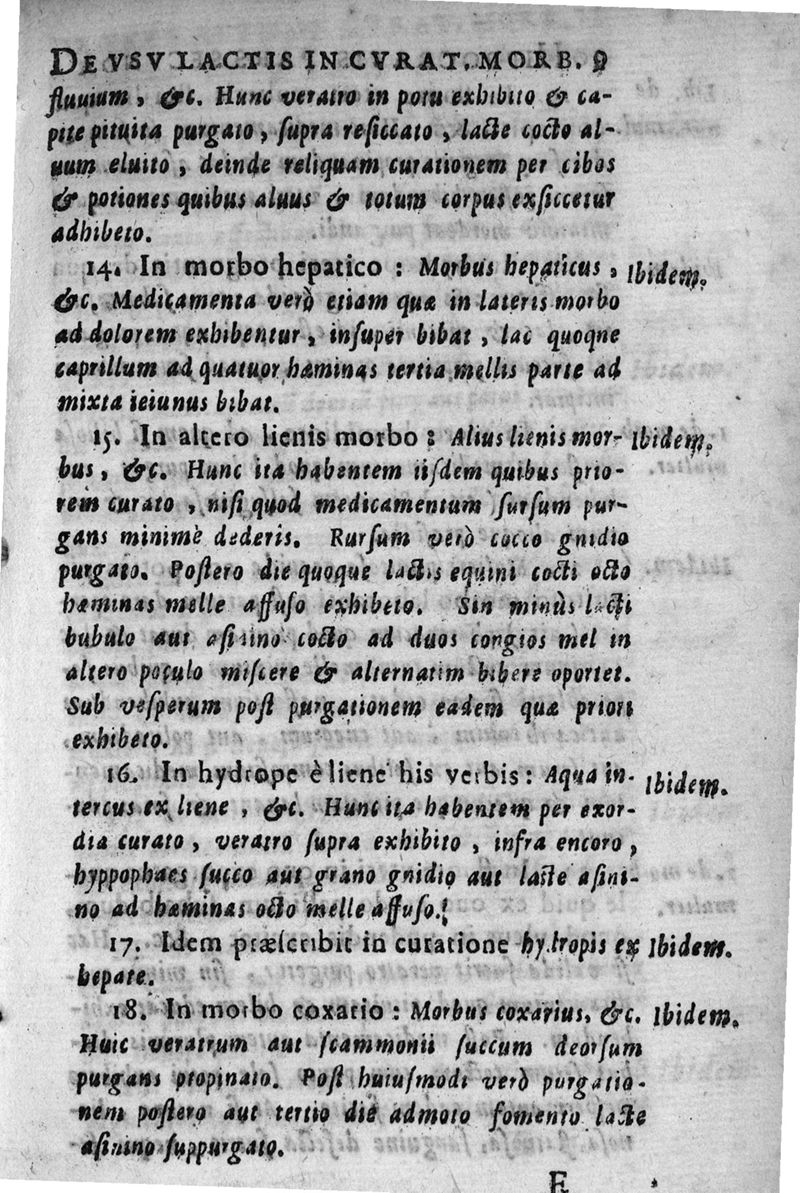 DE VSV LACTIS IN CVRAT. MORB. 9
fluuium, &c. Hunc veratro in potu exhibito & ca-
pite pituita purgato, ſupra reſiccato, lacte cocto al-
uum eluito, deinde reliquam curationem per cibos
& potiones quibus aluus & totum corpus exſiccetur
adhibeto.
14. In morbo hepatico : Morbus hepaticus, Ibidem.
&c. Medicamenta verò etiam quæ in lateris morbo
ad dolorem exhibentur, inſuper bibat, lac quoqne
caprillum ad quatuor hæminas tertia mellis parte ad
mixta ieiunus bibat.
15. In altero lienis morbo : Alius lienis mor- Ibidem.
bus, &c. Hunc ita habentem iiſdem quibus prio-
rem curato, niſi quod medicamentum ſurſum pur-
gans minimè dederis. Rurſum verò cocco gnidio
purgato. Poſtero die quoque lactis equini cocti octo
hæminas melle affuſo exhibeto. Sin minùs lacti
bubulo aut aſinino cocto ad duos congios mel in
altero poculo miſcere & alternatim bibere oportet.
Sub veſperum poſt purgationem eadem quæ priori
exhibeto.
16. In hydrope è liene his verbis : Aqua in- Ibidem.
tercus ex liene, &c. Hunc ita habentem per exor-
dia curato, veratro ſupra exhibito, infra encoro,
hyppophaes ſucco aut grano gnidio aut lacte aſini-
no ad hæminas octo melle affuſo.
17. Idem præſcribit in curatione hydropis ex Ibidem.
hepate.
18. In morbo coxario : Morbus coxarius, &c. Ibidem.
Huic veratrum aut ſcammonii ſuccum deorſum
purgans propinato. Poſt huiuſmodi verò purgatio-
nem poſtero aut tertio die admoto fomento lacte
aſinino ſuppurgato.
E